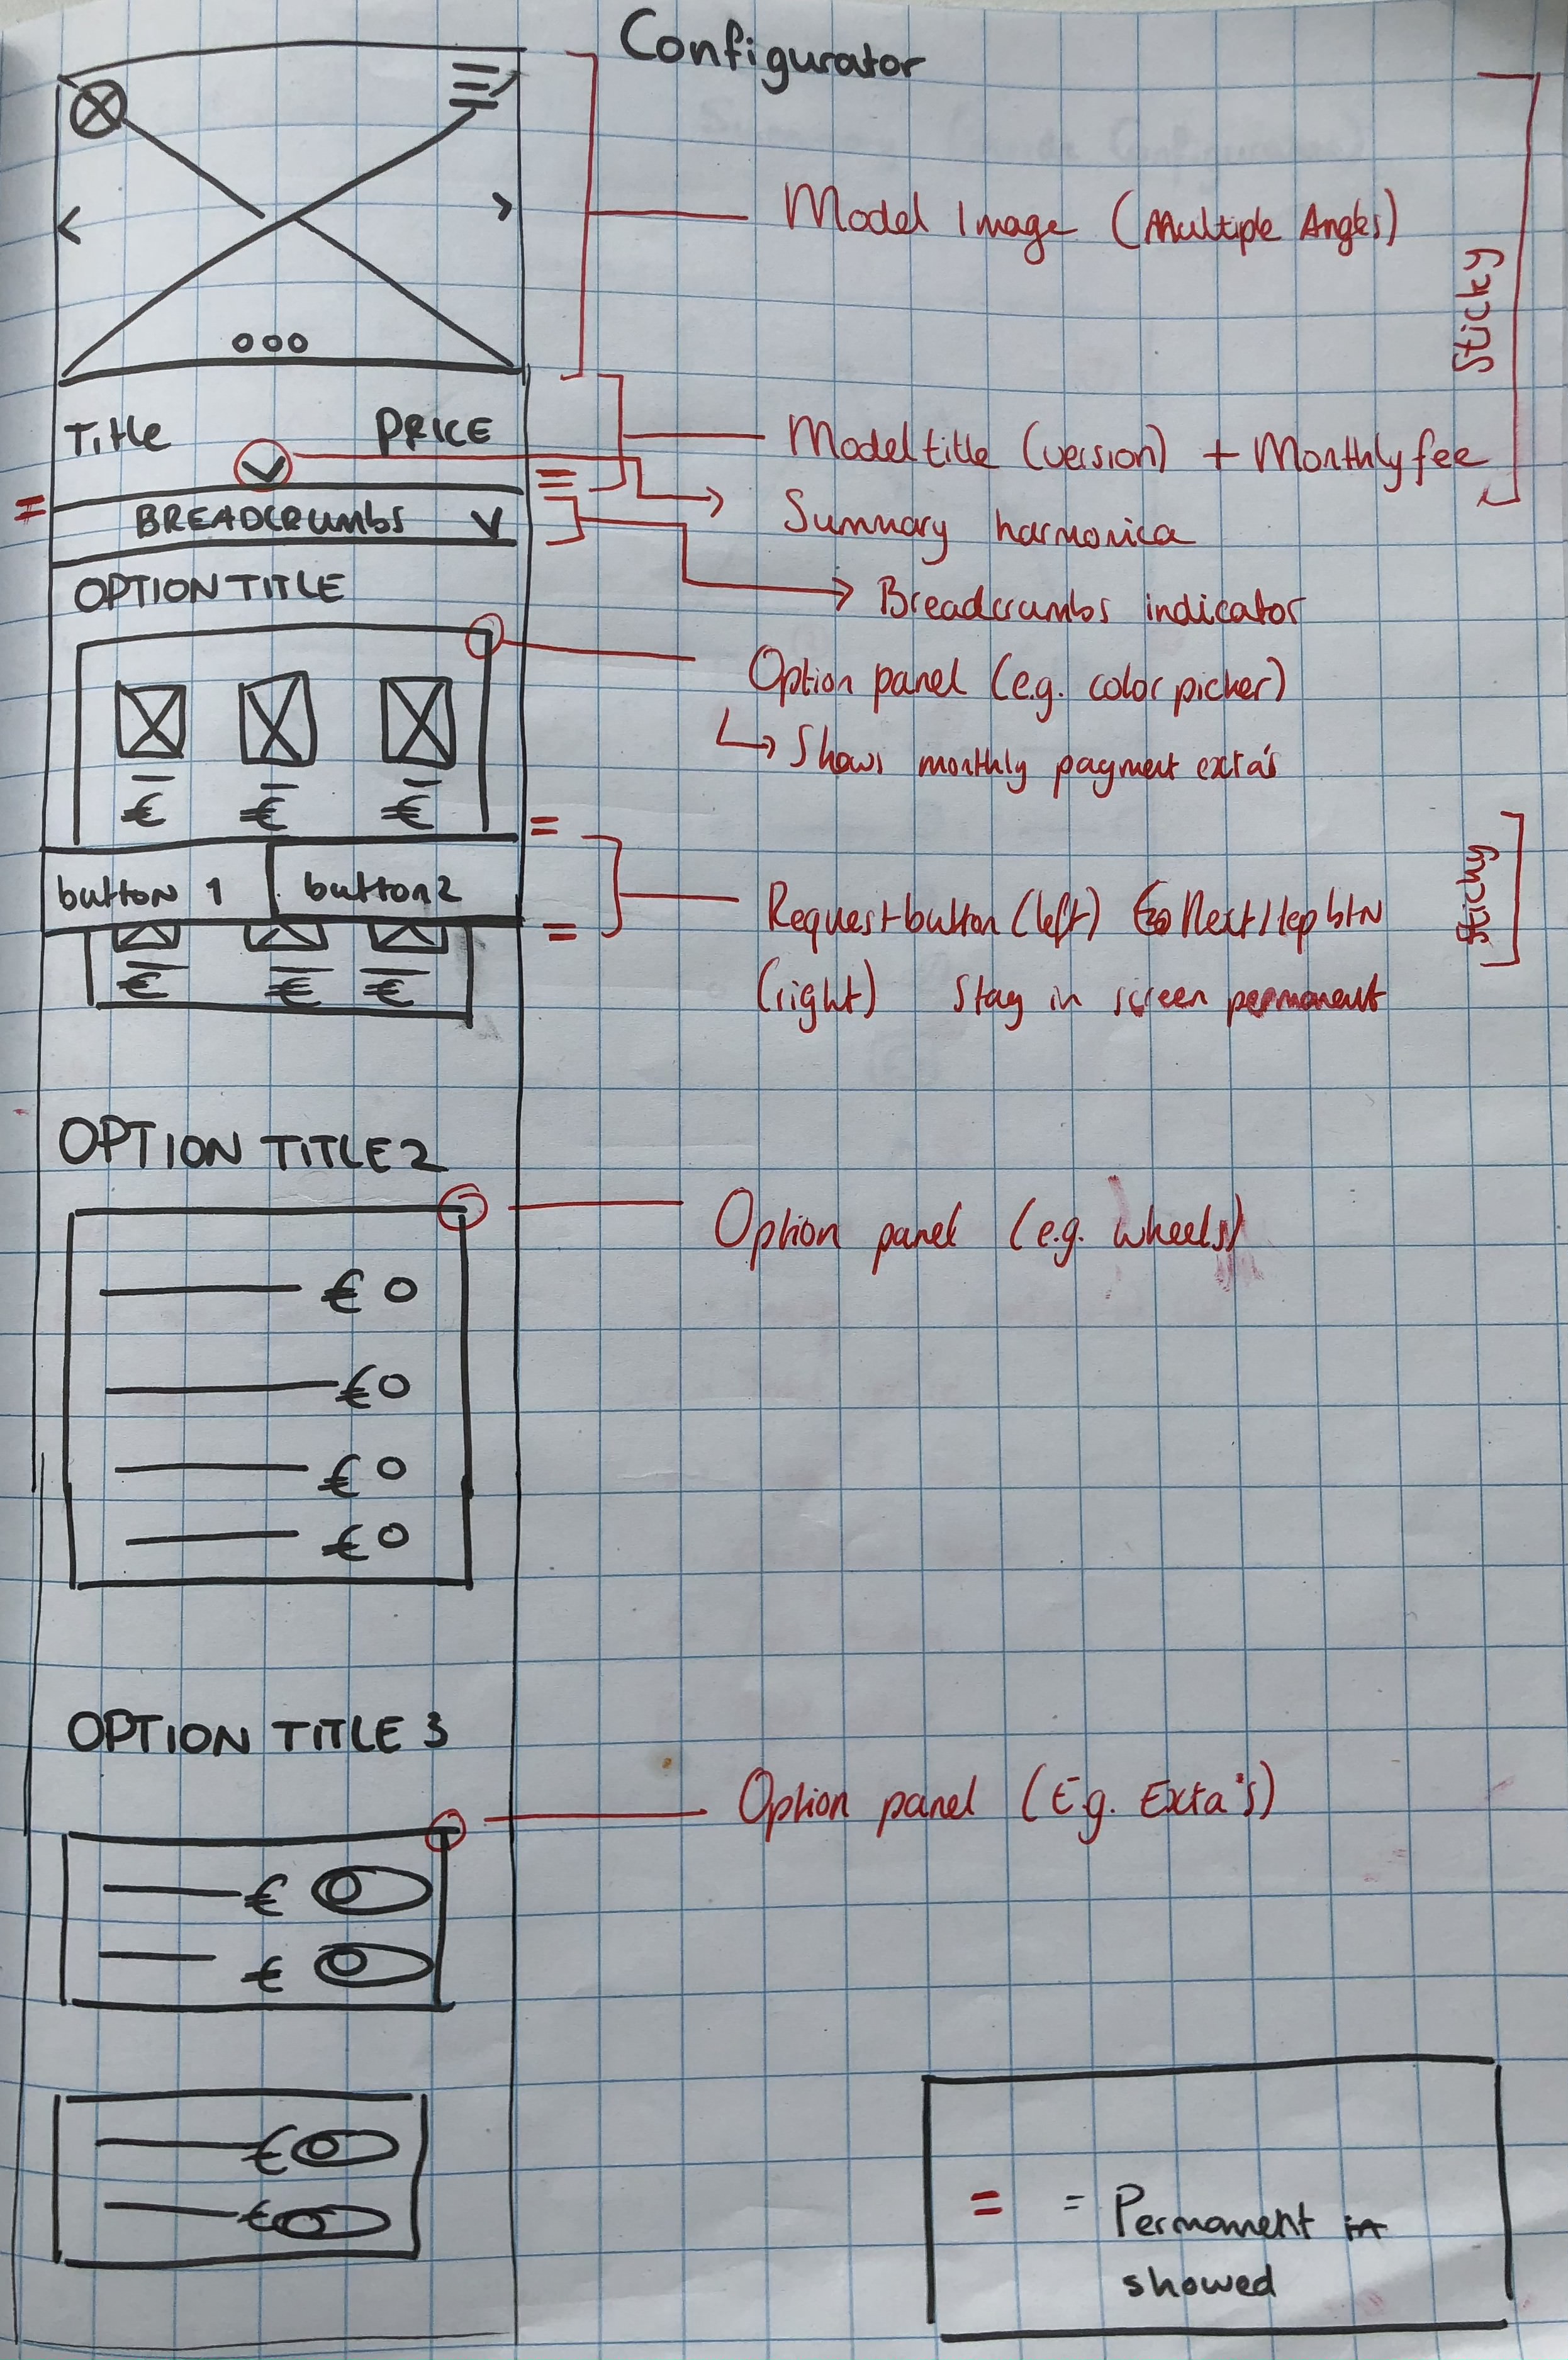 Configurator
Model Image (Multiple Angles)
Sticky
Title PRICE
Model title (version) + Monthly fee
Summary harmonica
BREADCRUMBS
Breadcrumbs indicator
OPTION TITLE
Option panel (e.g. color picker)
Shows monthly payment exta's
€ € €
button 1 button 2
Request button (left) Next step btn
(right) Stay in screen permanent
Sticky
€ € €
OPTION TITLE 2
Option panel (e.g. wheels)
€
€
€
€
OPTION TITLE 3
Option panel (E.g. Exta's)
€
€
€
€
= = Permanent in
showed